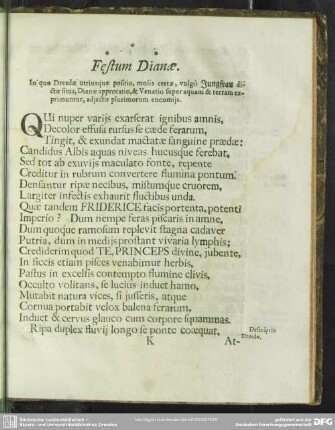 * * *
Festum Dianæ.
In quo Dresdæ utriusque positio, molis certæ, vulgò Jungfrau di-
ctæ situs, Dianæ apprecatio, & Venatio super aquam & terram ex-
primuntur, adjectis plurimorum encomijs.
QUi nuper varijs exarserat ignibus amnis,
Decolor effusa rursus se cæde ferarum,
Tingit, & exundat mactatæ sanguine prædæ:
Candidus Albis aquas niveas hucusque ferebat,
Sed tot ab exuvijs maculato fonte, repente
Creditur in rubrum convertere flumina pontum.
Densantur ripæ necibus, mistumque cruorem,
Largiter infectis exhaurit fluctibus unda.
Quæ tandem FRIDERICE facis portenta, potenti
Imperio? Dum nempe feras piscaris in amne,
Dum quoque ramosum replevit stagna cadaver
Putria, dum in medijs prostant vivaria lymphis;
Crediderim quod TE, PRINCEPS divine, jubente,
In siccis etiam pisces venabimur herbis,
Pastus in excelsis contempto flumine clivis,
Occulto volitans, se lucius induet hamo,
Mutabit natura vices, si jusseris, atque
Cornua portabit velox balena ferarum,
Induet & cervus glauco cum corpore squammas.
Ripa duplex fluvij longo se ponte coæquat,
Descriptio
Dresdæ.
K At-